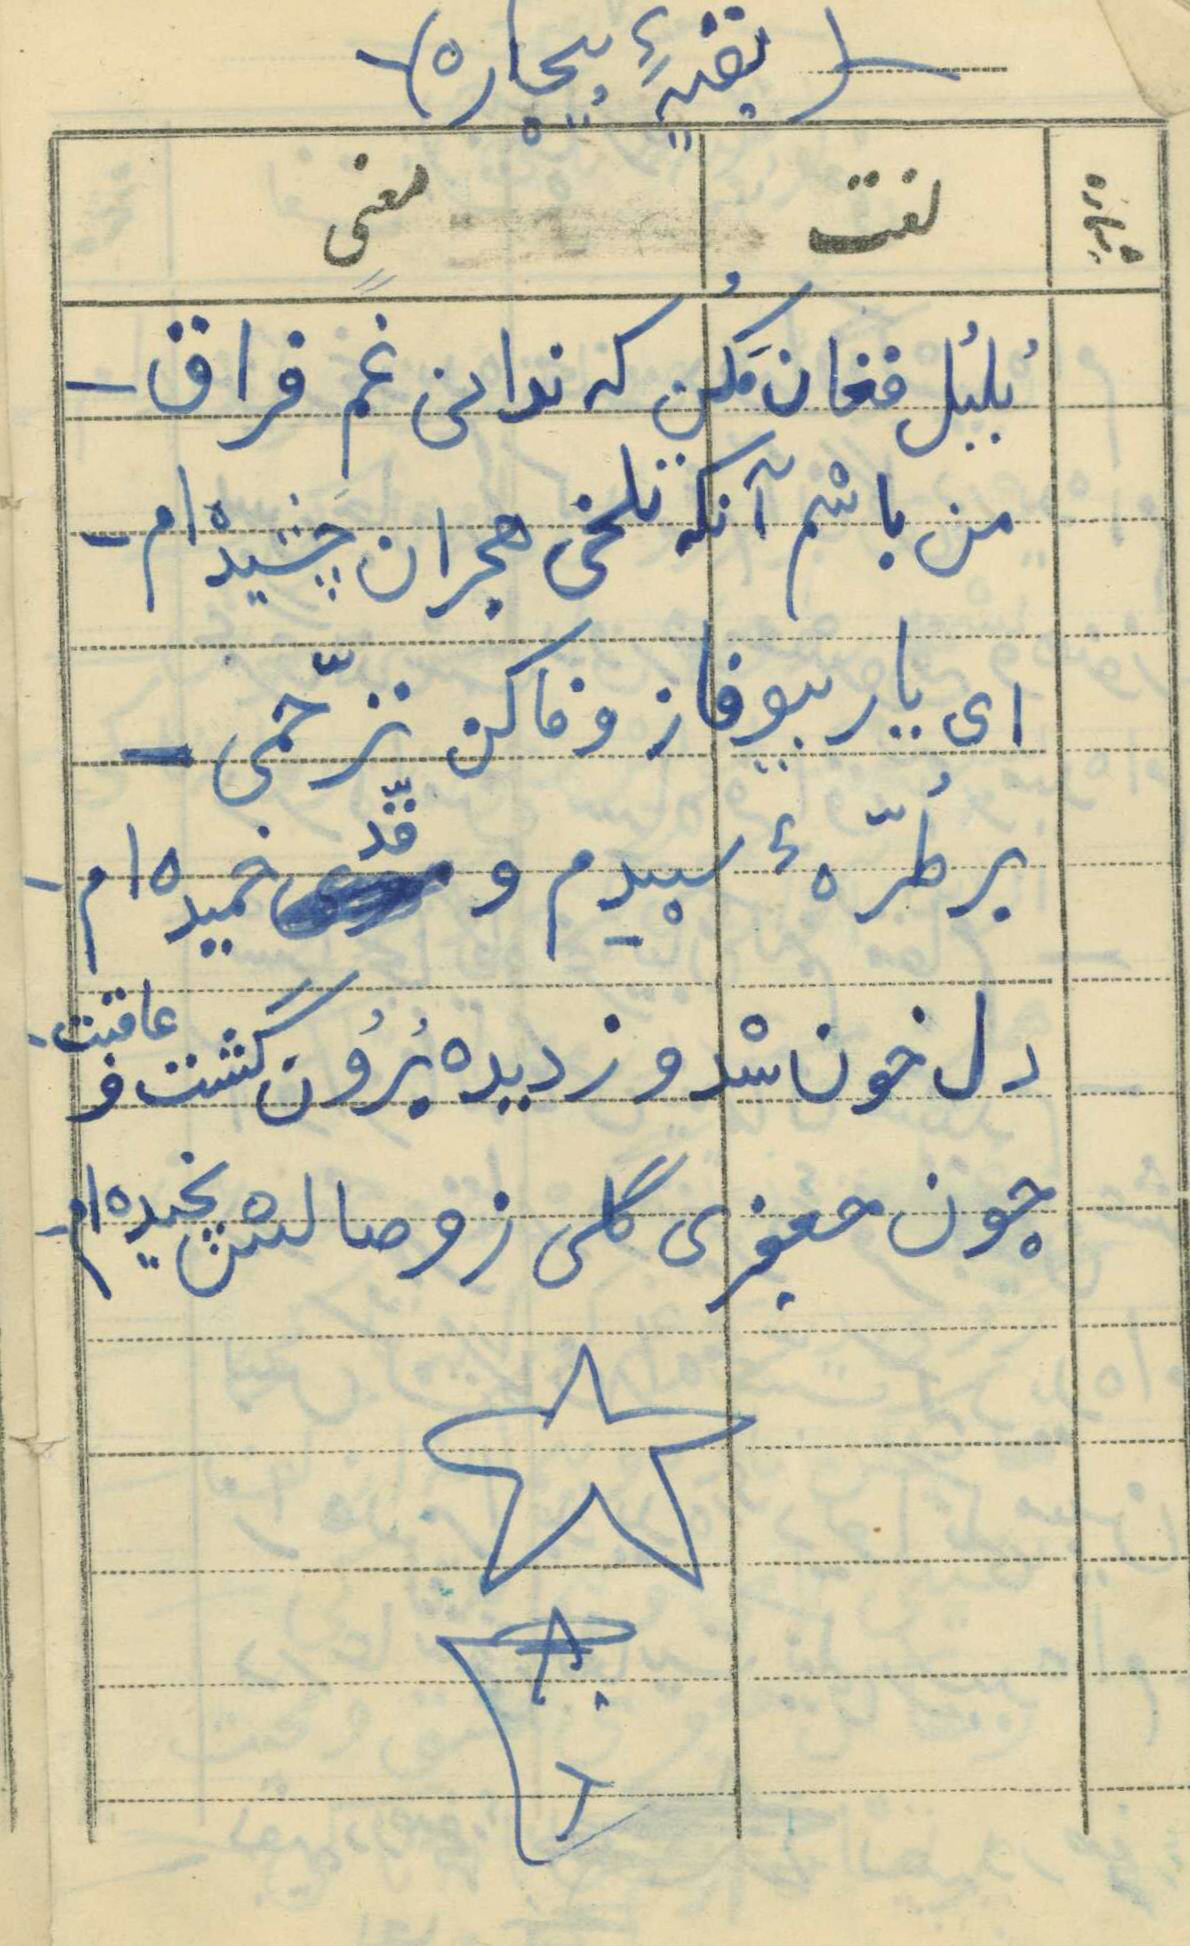 (بقیهٔ بیچاره)
شماره لغت معنی
بُلبُل فغان مَکُن که ندانی غم فراق -
من باشم آنکه تلخی هجران چشیده‌ام -
ای یار بیوفا ز وفا کن ترّحمی -
بر طُرّهٔ سپیدم و قدّ خمیده‌ام -
دل خون شد و ز دیده بُرُون گشت و عاقبت -
چون جعفری گلی ز وصالش نچیده‌ام -